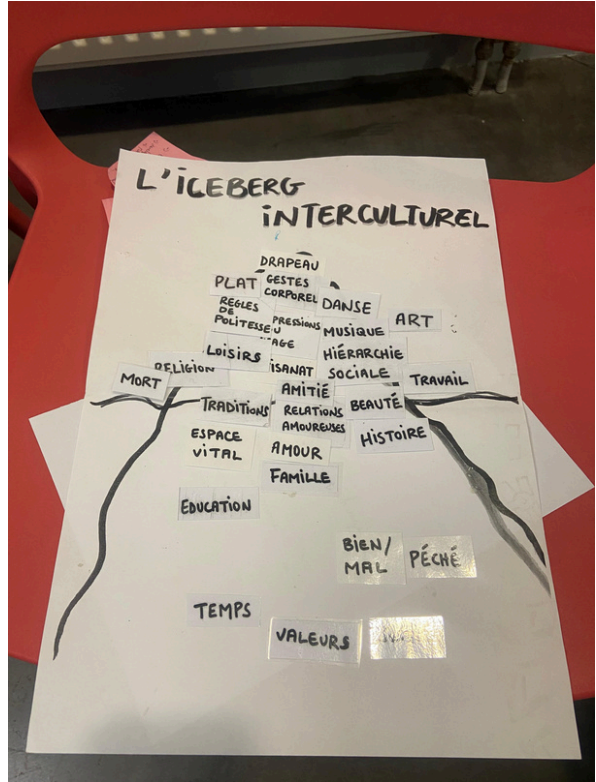 L'iCEBERG
iNTERCULTUREL
DRAPEAU
PLAT
GESTES
CORPOREL
DANSE
REGLES
DE
POLITESSE
PRESSIONS
MUSIQUE
ART
AGE
LOISIRS
HIÉRARCHIE
SOCIALE
RELIGION
ISANAT
MORT
AMITIÉ
TRAVAIL
TRADITIONS
RELATIONS
AMOUREUSES
BEAUTÉ
ESPACE
ViTAL
AMOUR
HISTOIRE
FAMiLLE
EDUCATION
BiEN/
MAL
PÉCHÉ
TEMPS
VALEURS